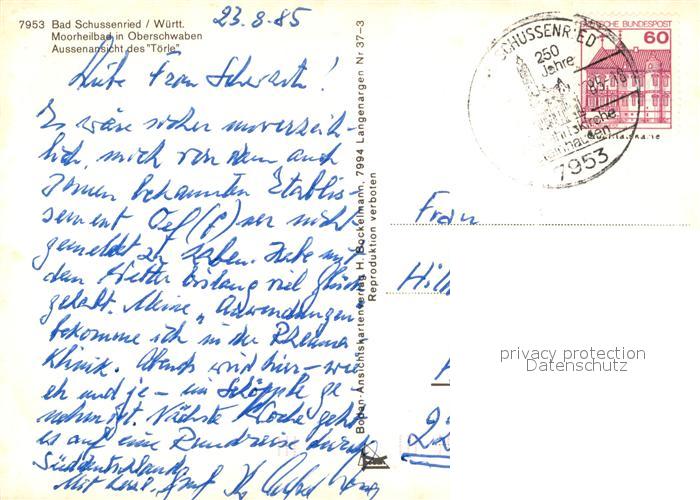 7953 Bad Schussenried / Württ.
Moorheilbad in Oberschwaben
Aussenansicht des "Törle"
23.8.85
Liebe Frau
Es wäre sicher unverzeih-
lich, mich von dem auch
Ihnen bekannten Etablis-
sement nicht
gemeldet zu haben. Habe mit
dem Wetter bislang viel Glück
gehabt. Meine "Anwendungen"
bekomme ich in der Rheuma
Klinik. Abends wird hier - wie
eh und je - ein Schöpple ge-
nehmigt. Nächste Woche geht
es auf eine Rundreise durch
Süddeutschland.
Mit herzl. Gruß Ihr
Bodan-Ansichtskartenverlag H. Bockelmann, 7994 Langenargen Nr 37-3
Reproduktion verboten
SCHUSSENRIED
250
Jahre
7953
DEUTSCHE BUNDESPOST
60
Frau
privacy protection
Datenschutz